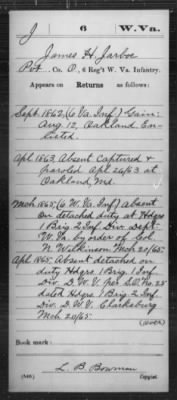 J 6 W. Va.
James H Jarboe
Pvt., Co. O, 6 Reg't W. Va. Infantry.
Appears on Returns as follows:
Sept. 1862, (6 Va. Inf.) Gain:
Aug. 12, Oakland, En-
listed.
Apl. 1863, Absent captured &
paroled Apl. 26/63 at
Oakland, Md.
Mch. 1865 (6 W. Va. Inf) Absent
on detached duty at Hdqrs
1 Brig 2 Inf. Div. Dept.
W. Va by order of Col.
N. Wilkinson Mch 20/65
Apl. 1865, Absent detached on
duty Hdqrs. 1 Brig. 1 Inf.
Div. D. W. V. per S.O. No. 25
dated Hdqrs. 1 Brig. 2 Inf.
Div. D. W. V. Clarksburg
Mch. 20/65.
(over)
Book mark:
L. B. Bowman
(546) Copyist.